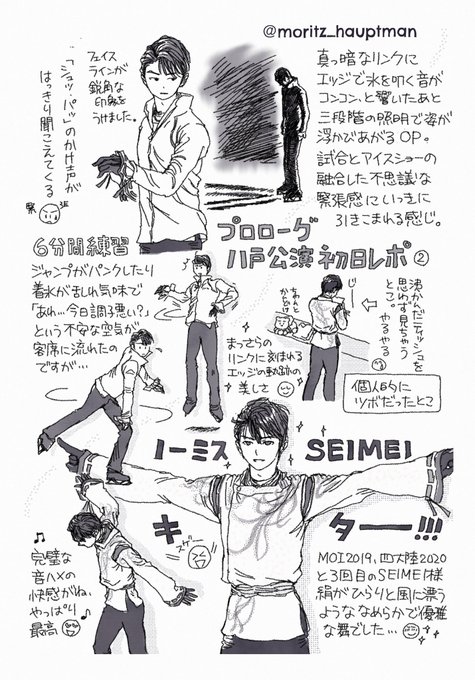 @moritz_hauptman
真っ暗なリンクに
エッジで氷を叩く音が
コンコン、と響いたあと
三段階の照明で姿が
浮かであがるOP。
試合とアイスショーの
融合した不思議な
緊張感にいっきに
引きこまれる感じ。
フェイス
ラインが
鋭角な
印象を
うけました。
「シュッ、パッ」のかけ声が
はっきり聞こえてくる
緊張
プロローグ
八戸公演初日レポ②
6分間練習
ジャンプがパンクしたり
着氷が乱れ気味で
「あれ…今日調子悪い?」
という不安な空気が
客席に流れたの
ですが…
まっさらの
リンクに刻まれる
エッジの軌跡の
美しさ
ちょんと
からだ
沸かんだティッシュを
思わず見ちゃう
とこ。
やるやる
個人的に
ツボだったとこ
ノーミス SEIMEI
キター!!!
スゲー
完璧な
音ハメの
快感がね、
やっぱり
最高
MOI2019、四大陸2020
と3回目のSEIMEIは様
絹がひらりと風に漂う
ようななめらかで優雅
な舞でした…